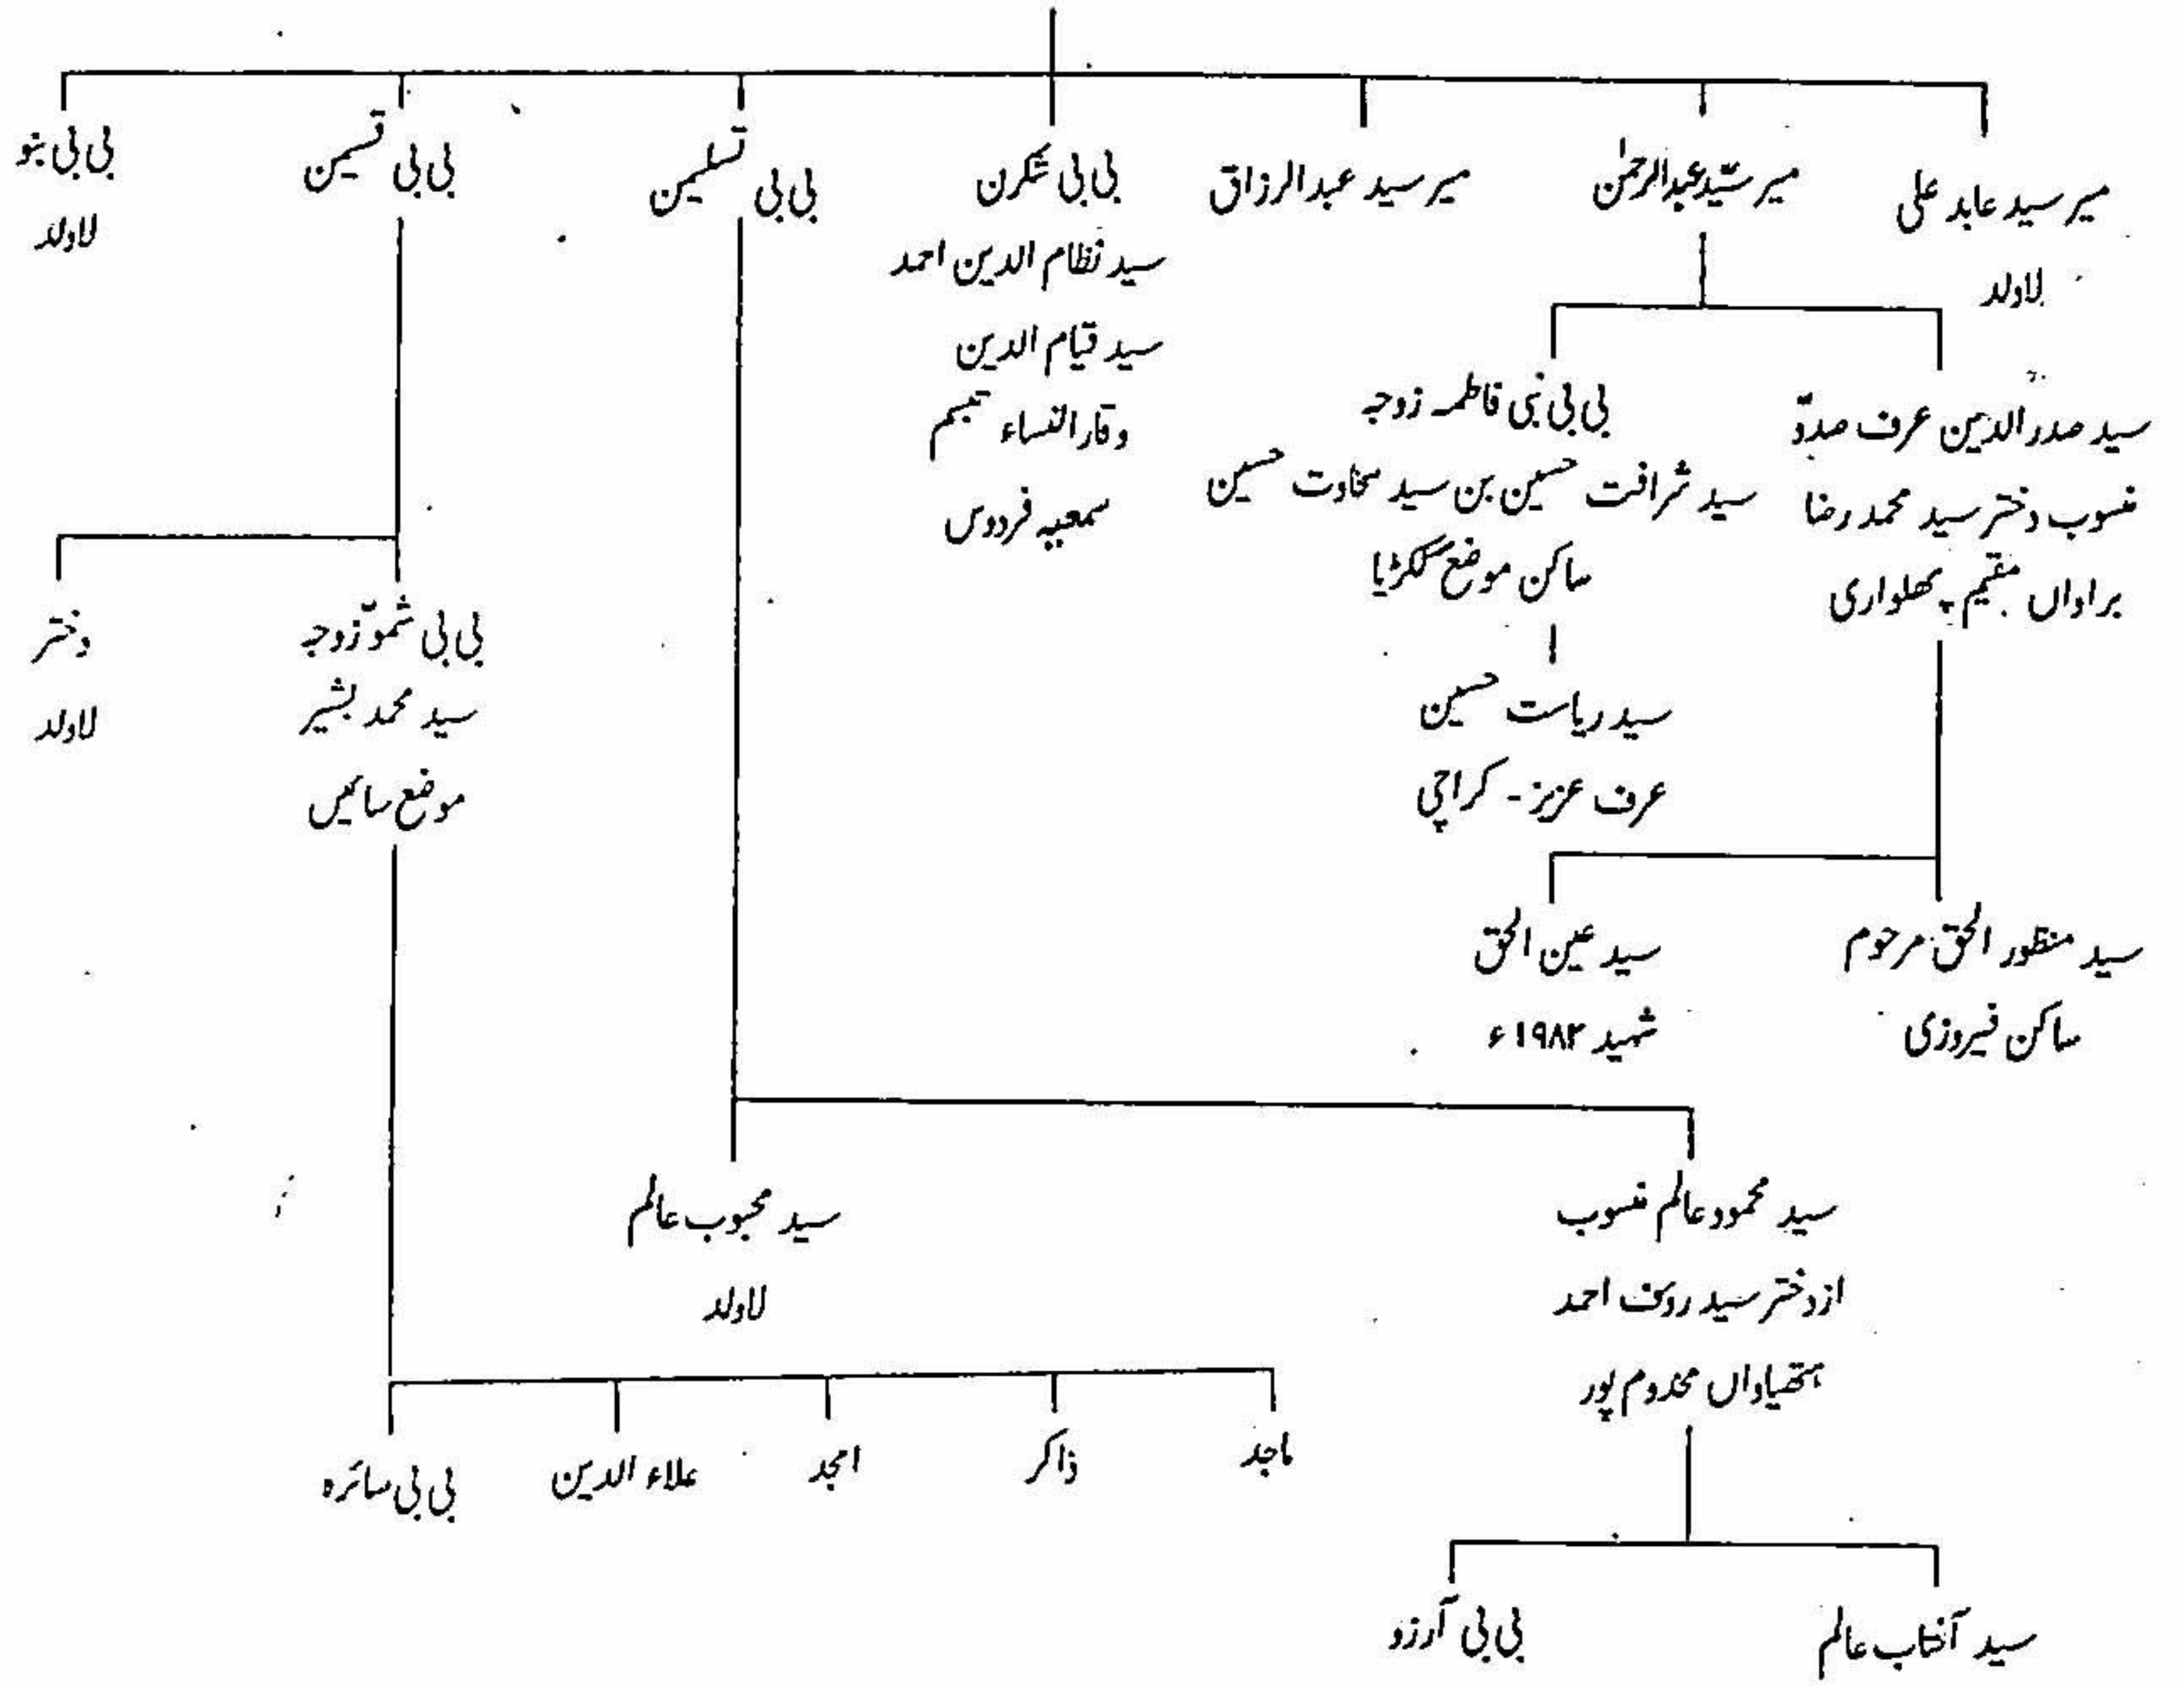 میر سید عابد علی
لاولد
میر سیّد عبدالرحمٰن
میر سید عبدالرزاق
بی بی شکرن
سید نظام الدین احمد
سید قیام الدین
وقار النساء تبسم
سمعیہ فردوس
بی بی تسلیمن
بی بی قسیمن
بی بی بنو
لاولد
سید صدر الدین عرف صدوّ
منسوب دختر سید محمد رضا
براواں مقیم پھلواری
بی بی نبی فاطمہ زوجہ
سید شرافت حسین بن سید سخاوت حسین
ساکن موضع ککڑیا
سید ریاست حسین
عرف عزیز - کراچی
بی بی شموّ زوجہ
سید محمد بشیر
موضع سائیں
دختر
لاولد
سید منظور الحق مرحوم
ساکن فیروزی
سید عین الحق
شہید ۱۹۸۲ء
سید محمود عالم منسوب
از دختر سید روف احمد
ہتھیاواں مخدوم پور
سید محبوب عالم
لاولد
ماجد
ذاکر
امجد
علاء الدین
بی بی سائرہ
سید آفتاب عالم
بی بی آرزو